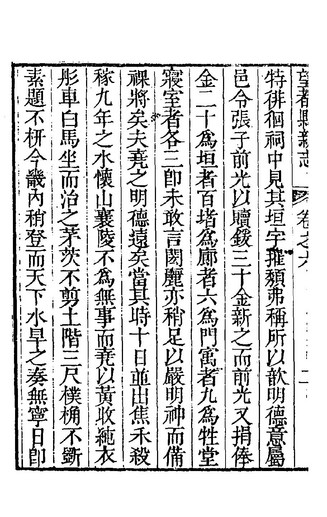 望都縣新志 卷之九
特徘徊祠中見其垣宇摧頹弗稱所以歆明德意屬
邑令張子前光以贖鍰三十金新之而前光又捐俸
金二十爲垣者百堵爲廊者六爲門寓者九爲牲堂
寢室者各三卽未敢言閎麗亦稍足以嚴明神而備
祼將矣夫堯之明德遠矣當其時十日並出焦禾殺
稼九年之水懷山襄陵不爲無事而堯以黃收純衣
彤車白馬坐而治之茅茨不剪土階三尺樸桷不斵
素題不枅今畿內稍登而天下水旱之奏無寧日卽